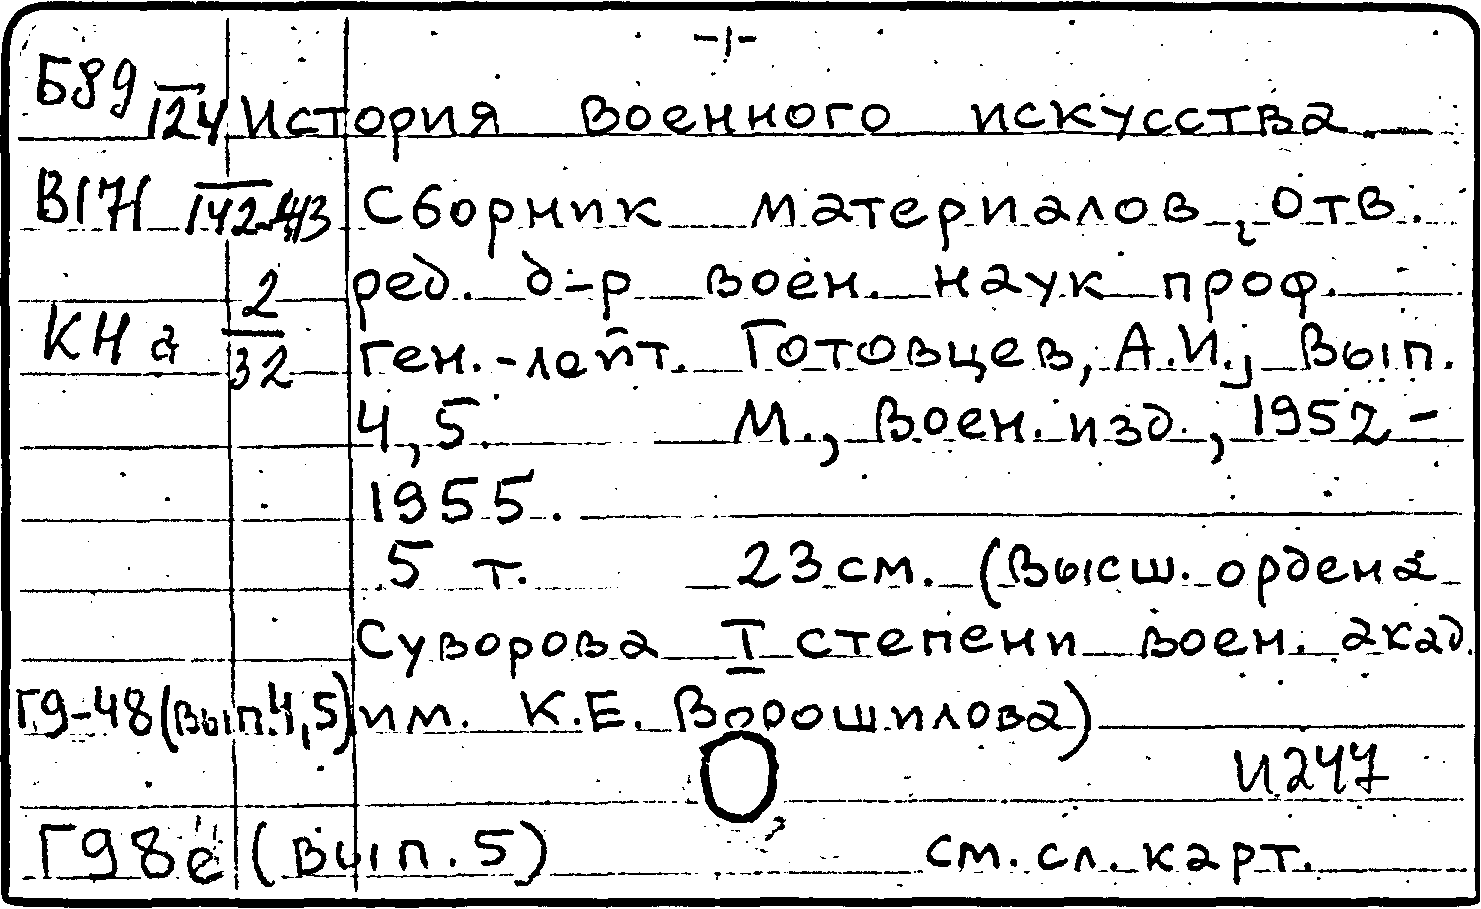 -1-
Б89 124 История военного искусства.
В17Н Сборник материалов, Отв.
2 ред. д-р воен. наук проф.
КН а 32 ген.-лейт. Готовцев, А.И., Вып.
4, 5. М., Воен. изд., 1952-
1955.
5 т. 23 см. (Высш. ордена
Суворова I степени воен. акад.
Г9-48 (вып. 4, 5) им. К.Е. Ворошилова)
И247
Г98е (вып. 5) см. сл. карт.